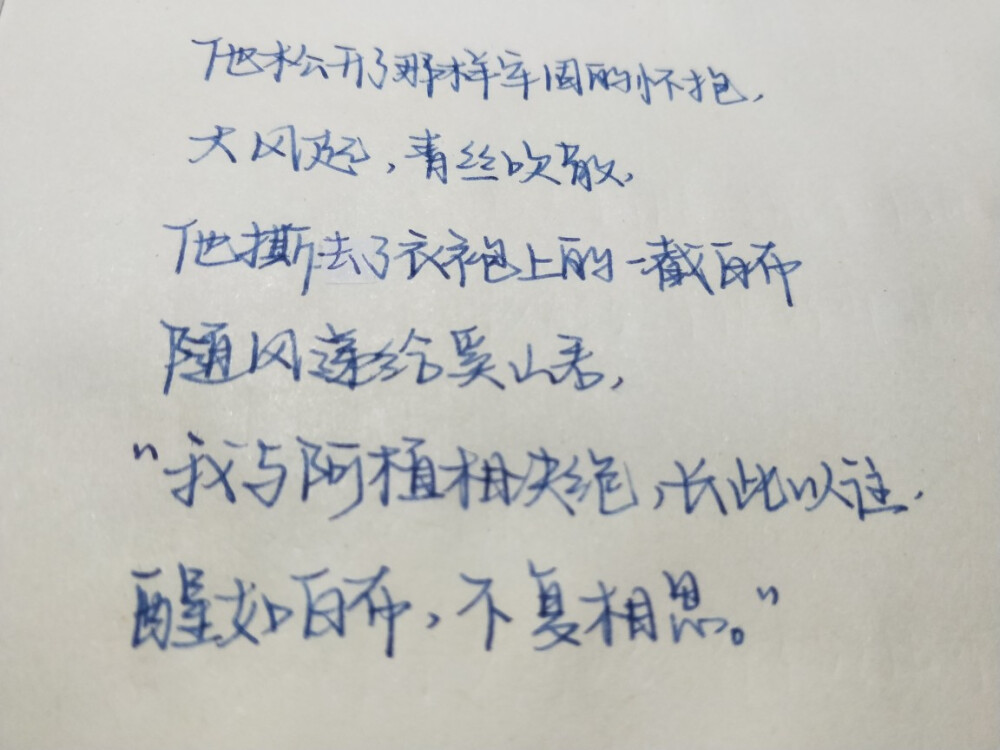 他松开了那样牢固的怀抱,
大风起,青丝吹散,
他撕去了衣袍上的一截白布
随风递给奚山君,
“我与阿植相决绝,长此以往,
醒如白布,不复相思。”